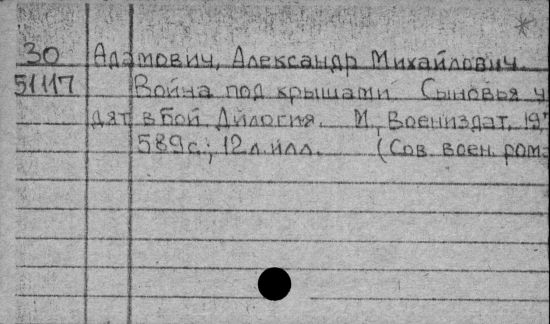 30 Адамович, Александр Михайлович.
51117 Война под крышами Сыновья у
дят в бой. Дилогия. М., Воениздат, 197
589 с.; 12 л. илл. (Сов. воен. ром-